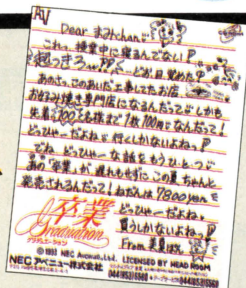 Dear まみchan
これっ、授業中に来るんでない！P
起っきろーーPP ぐーどが目覚めた
あのさっ、このあいだ工事してたお店
お好み焼き専門店になるんだって？しかも
先着300名も様まで1枚100円になんだって！
どっひゃーだよねP行くしかないよねっP
でね、どっひゃーな話をもうひとつP
あの「卒業」が遅れもせずにこの夏ちゃんと
発売されるんだって！おねだんは7800yen
どっひゃーだよねっ
買うしかないよねっP
From 美夏
卒業
Graduation
グラデュエーション
© 1993 NEC Avenue,Ltd. LICENSED BY HEAD ROOM
NECアベニュー株式会社